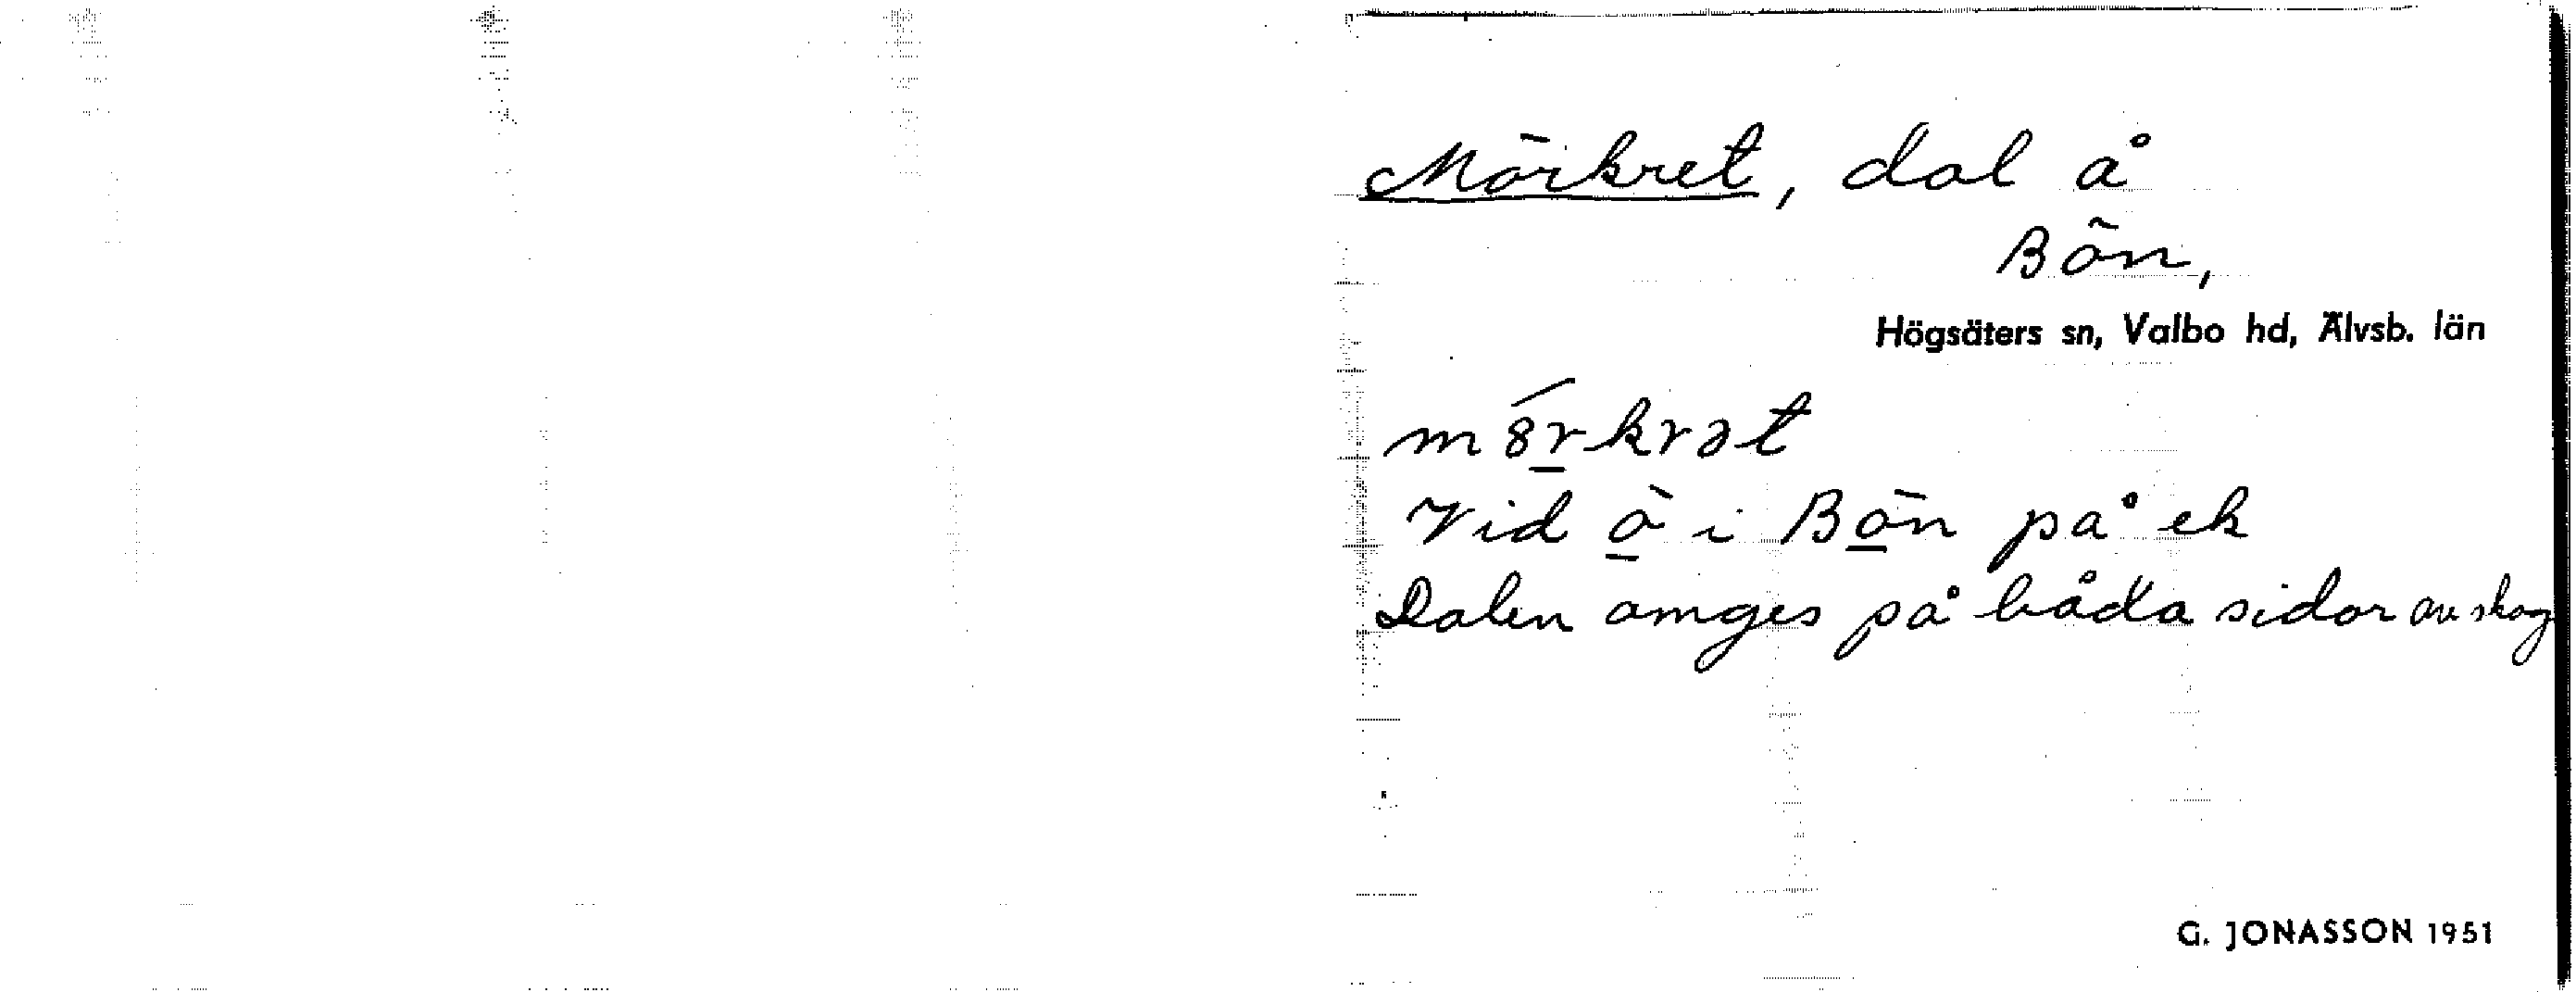 Mörkret, dal å
Bön,
Högsäters sn, Valbo hd, Älvsb. län
mörkrət
Vid ö i Bön på ek
Dalen omges på båda sidor av skog
G. JONASSON 1951